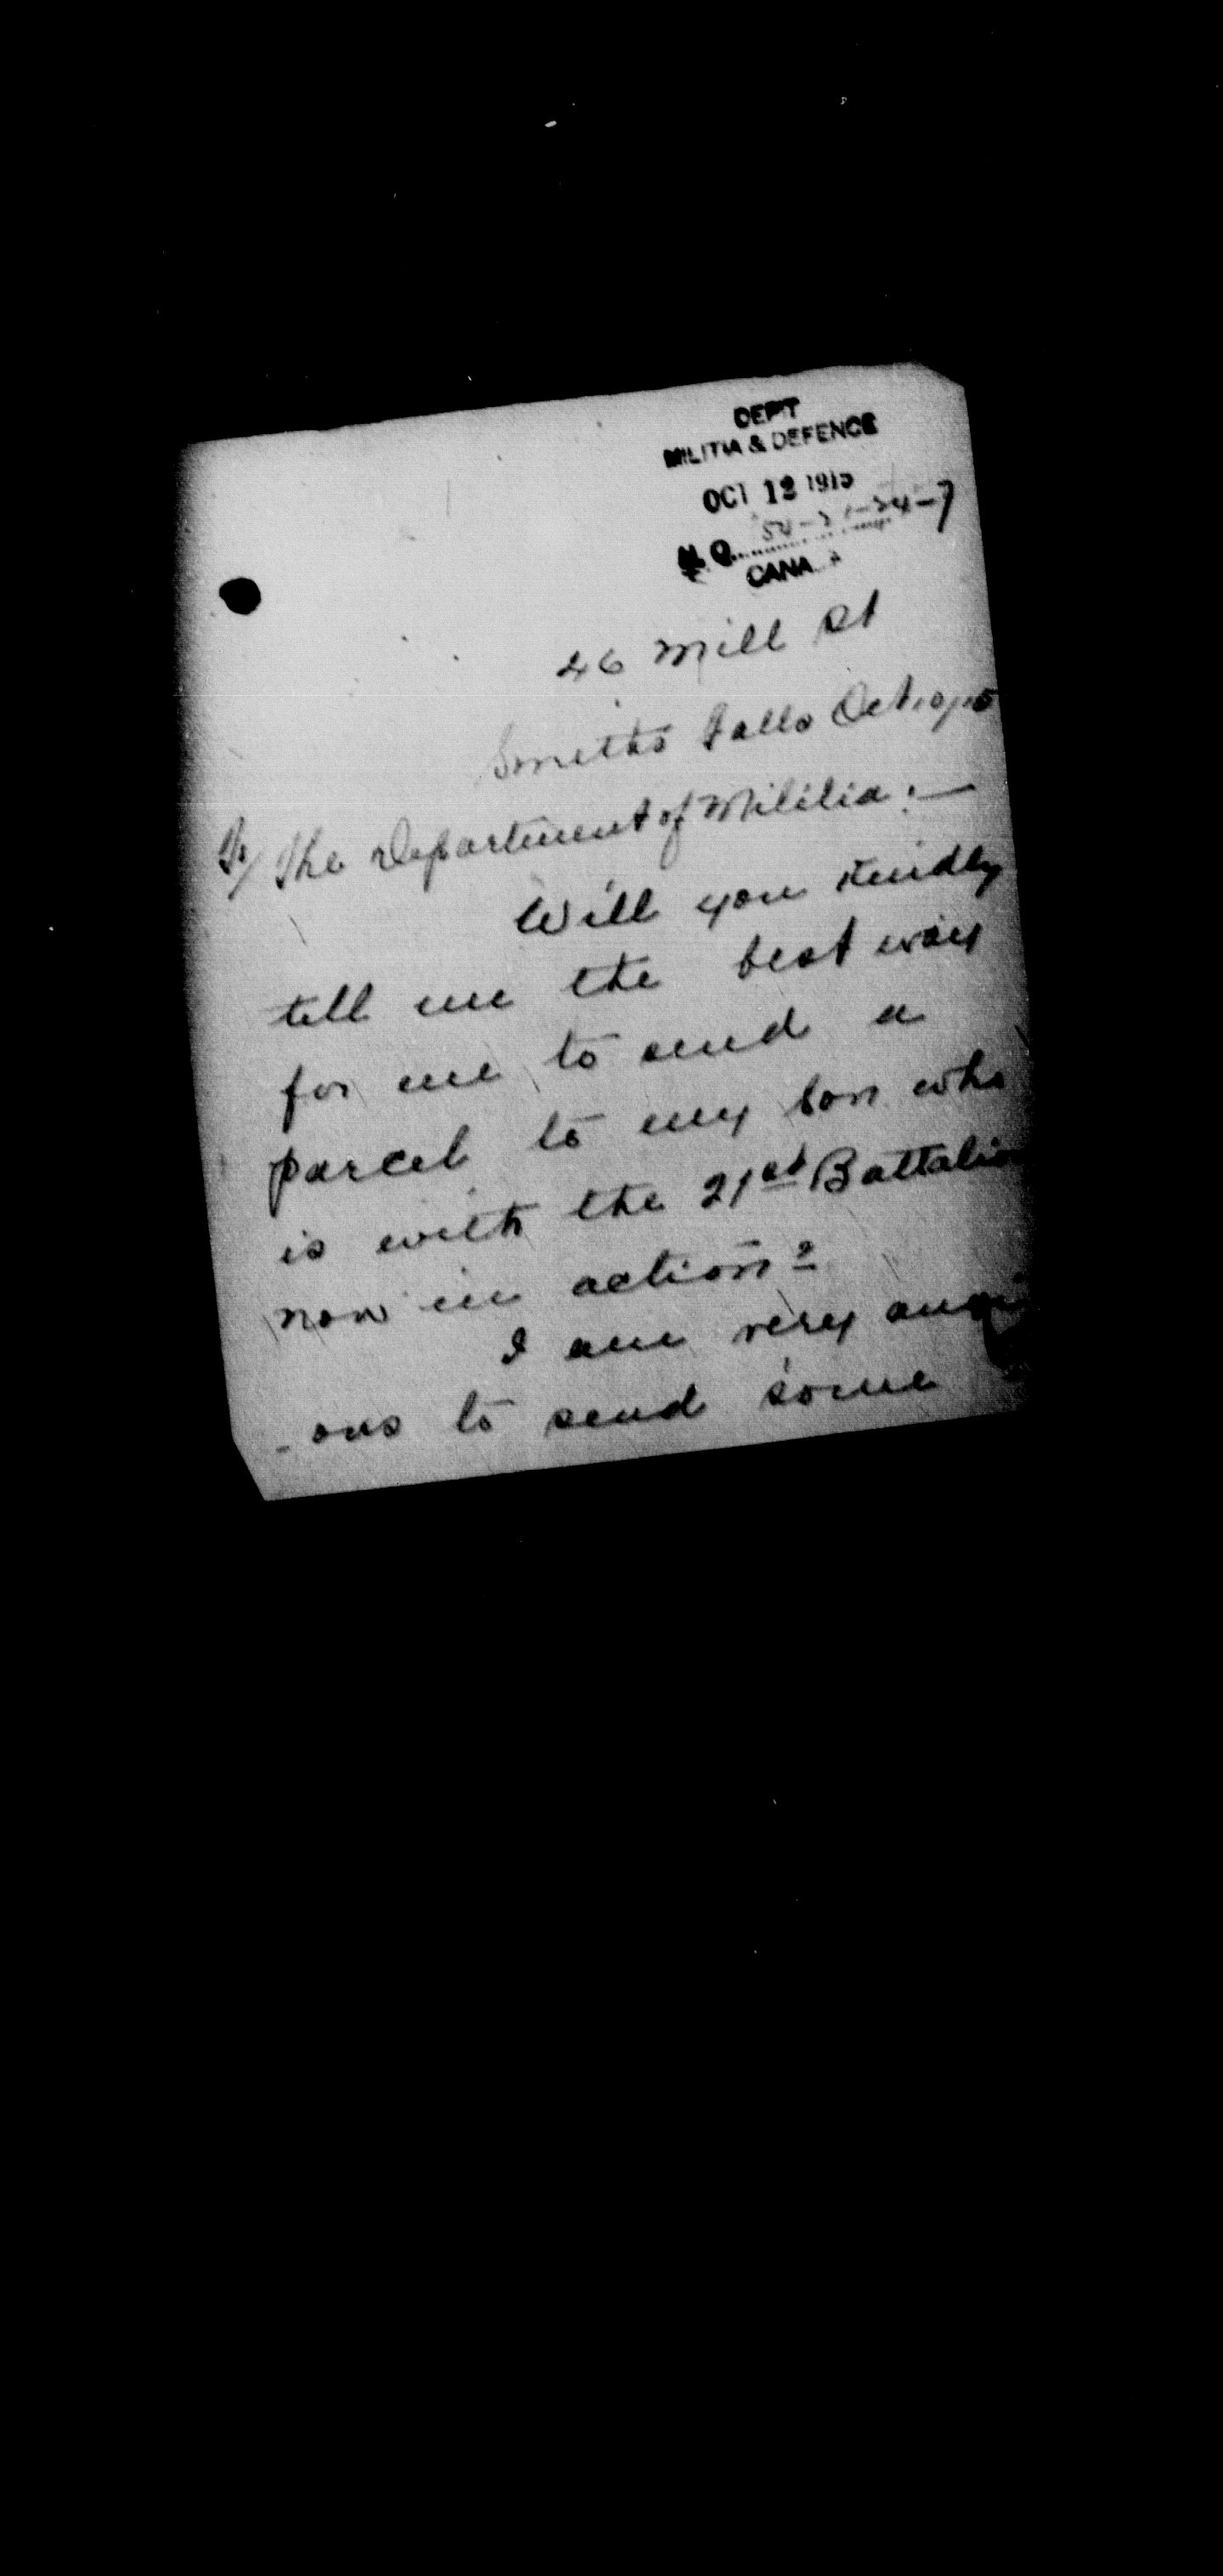 DEP'T
MILITIA & DEFENCE
OCT 12 1915
H.Q. 54-21-24-7
CANADA
46 Mill St
Smiths Falls Oct.10/15
To/ The Department of Militia:—
Will you kindly
tell me the best way
for me to send a
parcel to my son who
is with the 21st Battalion
now in action?
I am very anxi
-ous to send some